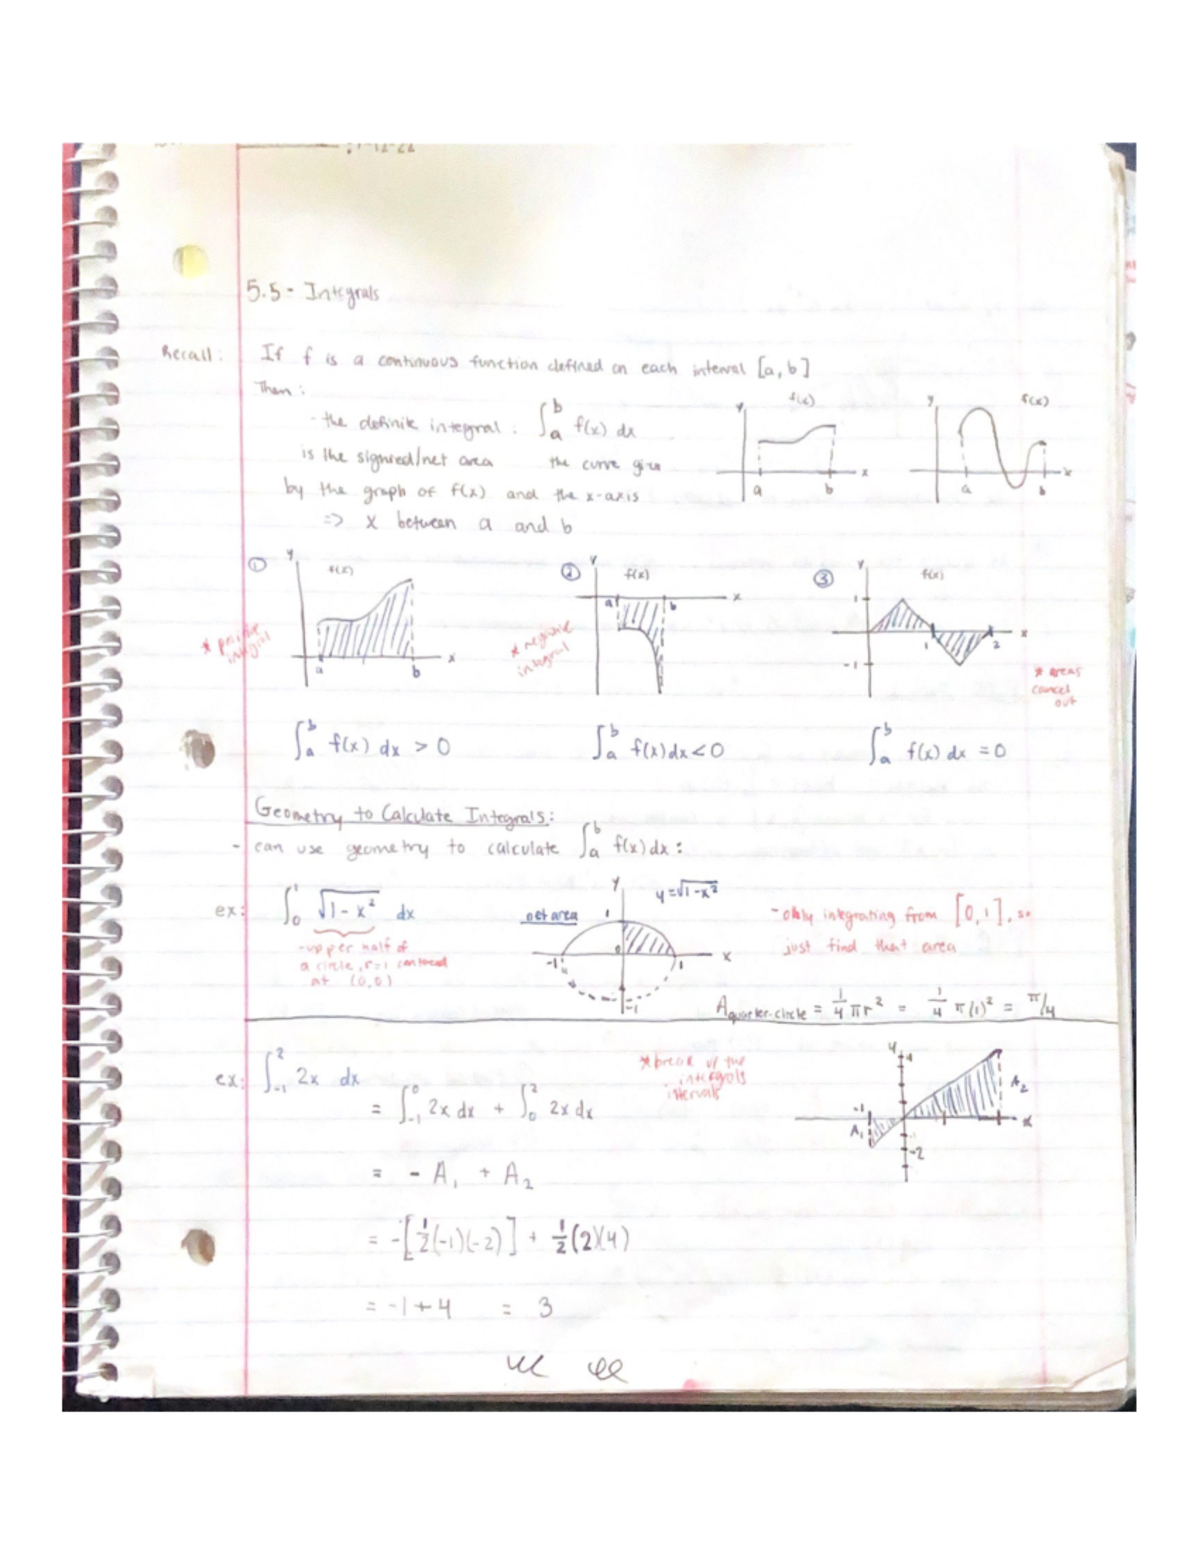 5.5 - Integrals
Recall: If f is a continuous function defined on each interval [a, b]
Then:
- the definite integral: ∫_a^b f(x) dx
is the signed/net area the curve give
by the graph of f(x) and the x-axis
=> x between a and b
y f(x) a b x
y f(x) a b x
① y f(x) a b x
* positive integral
② y f(x) a b x
* negative integral
③ y f(x) 1 -1 1 2 x
* areas cancel out
∫_a^b f(x) dx > 0
∫_a^b f(x) dx < 0
∫_a^b f(x) dx = 0
Geometry to Calculate Integrals:
- can use geometry to calculate ∫_a^b f(x) dx:
ex: ∫_0^1 √(1 - x²) dx
- upper half of
a circle, r=1 centered
at (0,0)
net area
y y = √(1 - x²)
1 0 -1 1 x -1
- only integrating from [0, 1], so
just find that area
A quarter-circle = 1/4 πr² = 1/4 π(1)² = π/4
ex: ∫_-1^2 2x dx
= ∫_-1^0 2x dx + ∫_0^2 2x dx
* break up the
integrals
intervals
y 4 A₂ -1 A₁ x -2
= - A₁ + A₂
= -[1/2(-1)(-2)] + 1/2(2)(4)
= -1 + 4 = 3